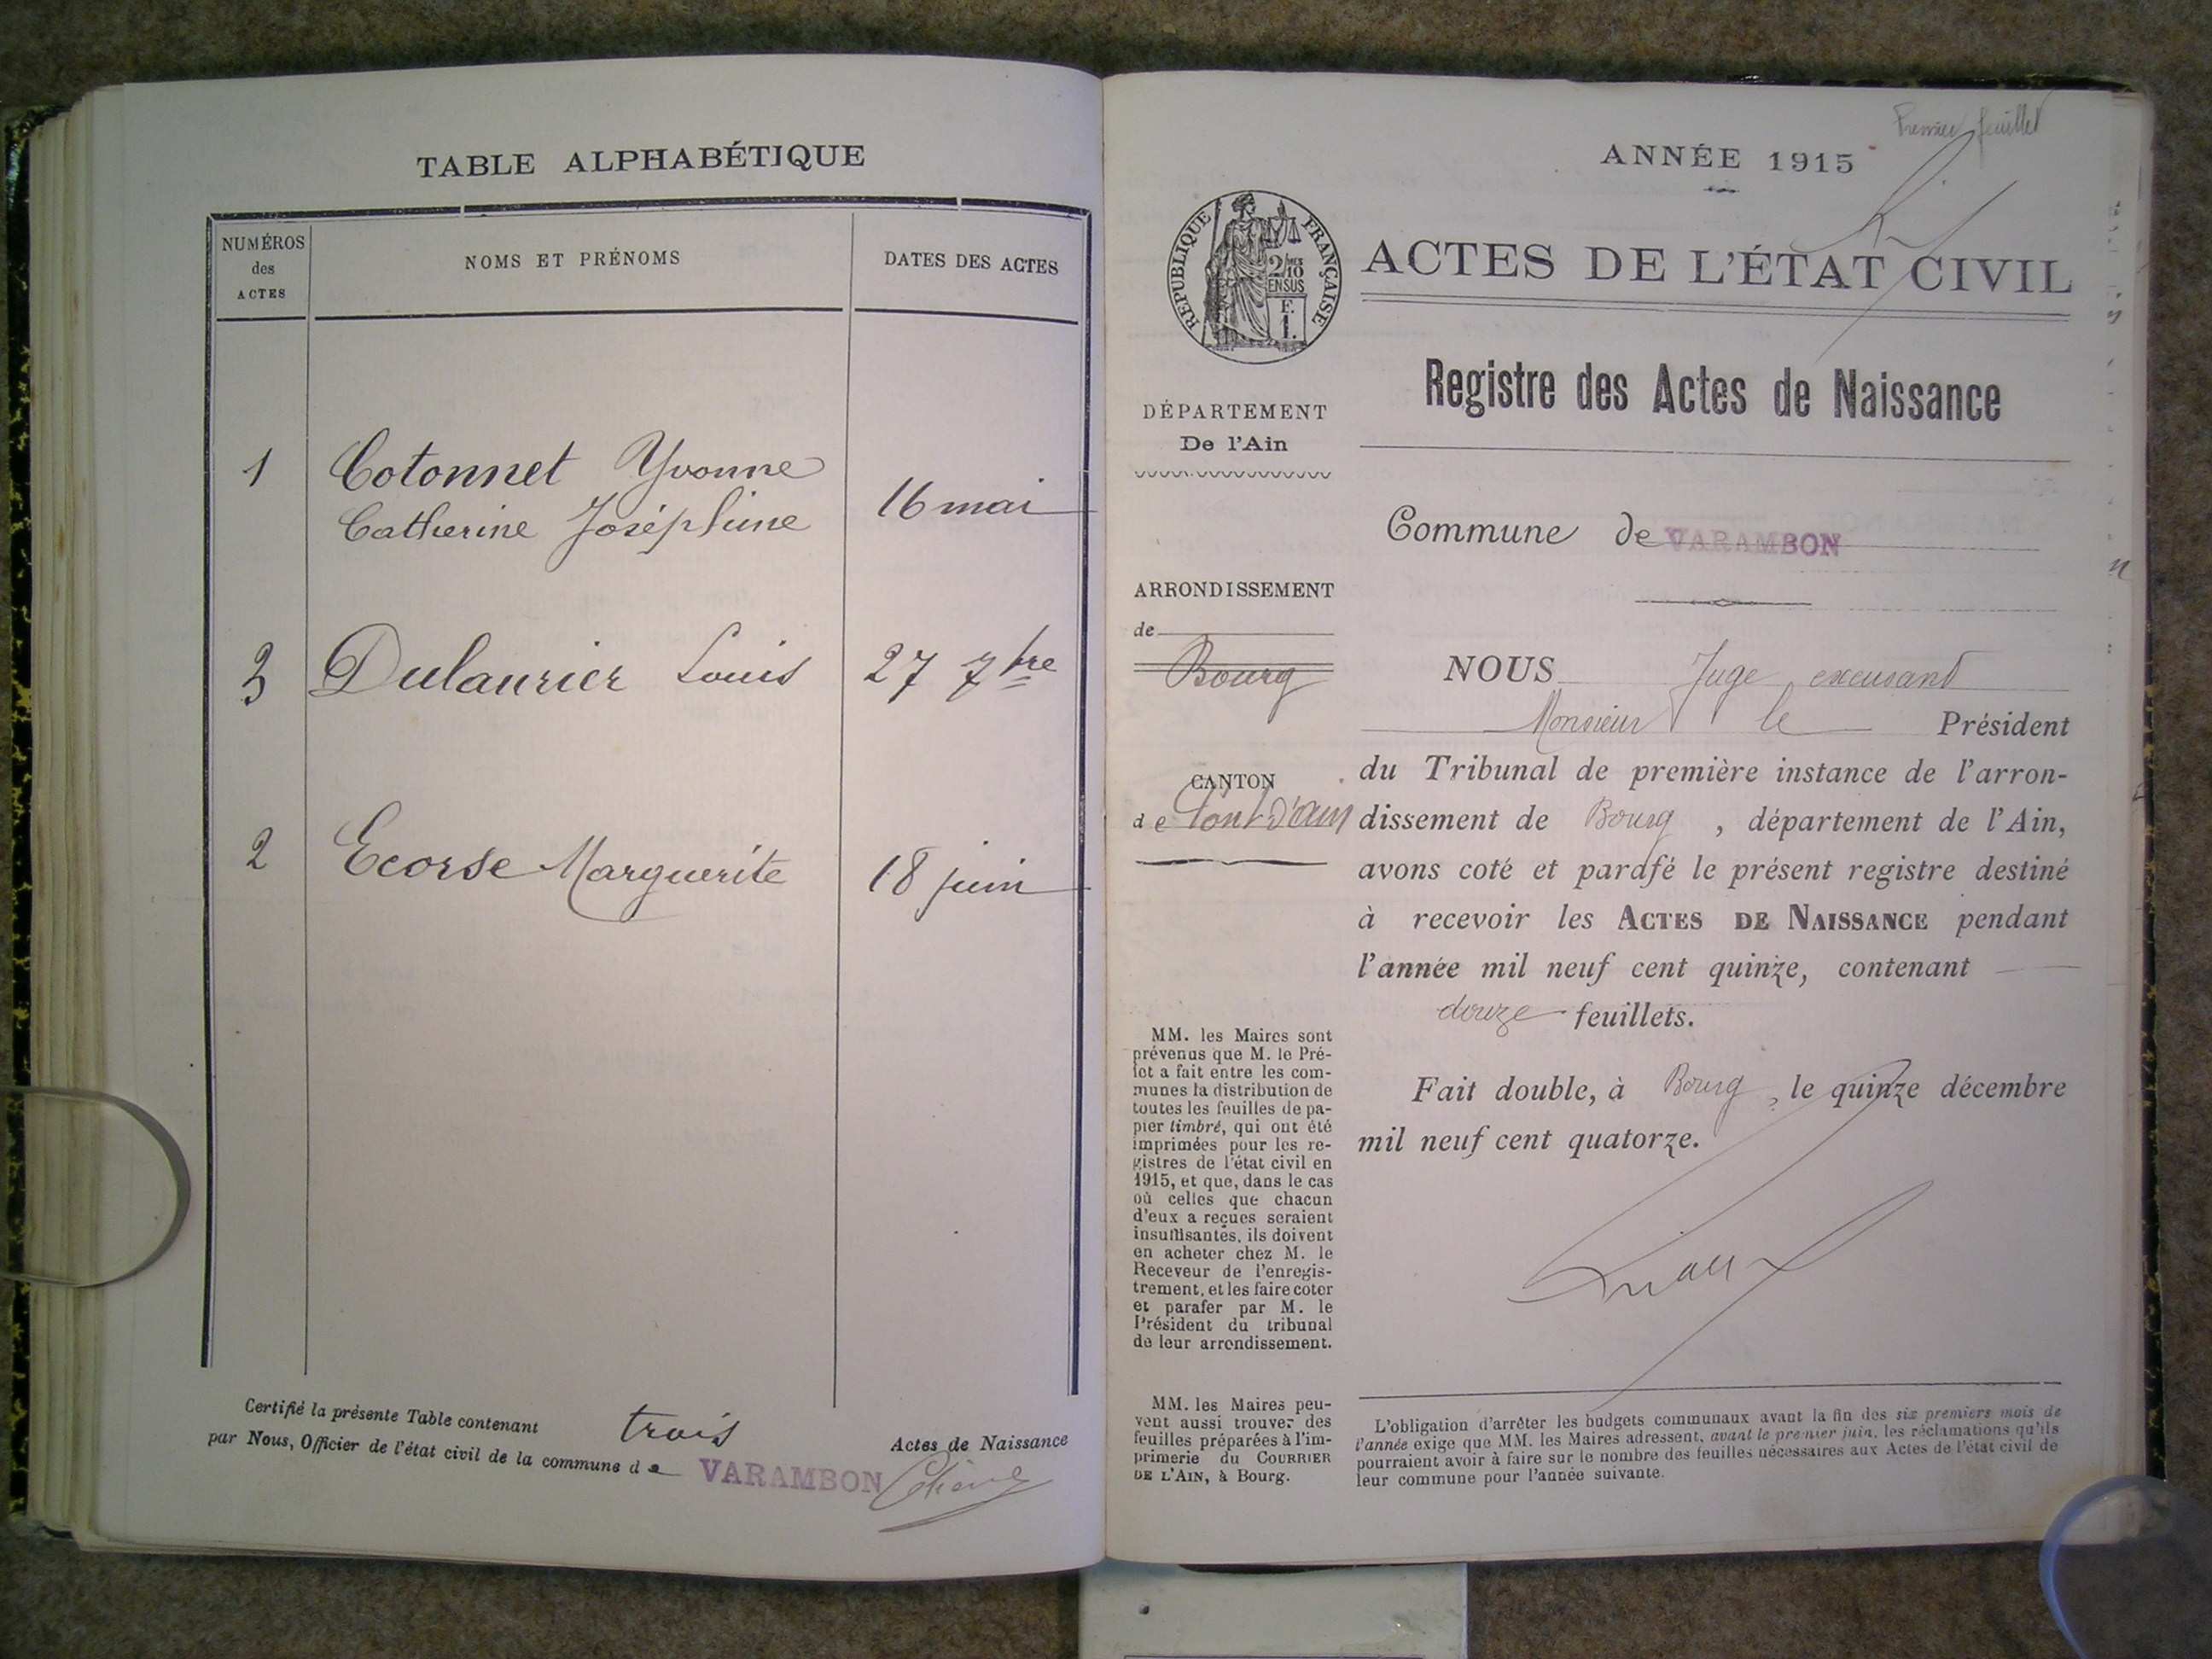 TABLE ALPHABÉTIQUE
NUMÉROS
des
ACTES
NOMS ET PRÉNOMS
DATES DES ACTES
1 Cotonnet Yvonne
Catherine Joséphine 16 mai
3 Dulaurier Louis 27 7bre
2 Ecorse Marguerite 18 juin
Certifié la présente Table contenant trois Actes de Naissance
par Nous, Officier de l'état civil de la commune de VARAMBON
Premier feuillet
ANNÉE 1915
RÉPUBLIQUE FRANÇAISE
2/10
EN SUS
F.
1.
ACTES DE L'ÉTAT CIVIL
Registre des Actes de Naissance
DÉPARTEMENT
De l'Ain
Commune de VARAMBON
ARRONDISSEMENT
de
Bourg
CANTON
de Pont d'ain
NOUS Juge excusant
Monsieur le Président
du Tribunal de première instance de l'arron-
dissement de Bourg, département de l'Ain,
avons coté et parafé le présent registre destiné
à recevoir les ACTES DE NAISSANCE pendant
l'année mil neuf cent quinze, contenant
douze feuillets.
Fait double, à Bourg, le quinze décembre
mil neuf cent quatorze.
MM. les Maires sont
prévenus que M. le Pré-
fet a fait entre les com-
munes la distribution de
toutes les feuilles de pa-
pier timbré, qui ont été
imprimées pour les re-
gistres de l'état civil en
1915, et que, dans le cas
où celles que chacun
d'eux a reçues seraient
insuffisantes, ils doivent
en acheter chez M. le
Receveur de l'enregis-
trement, et les faire coter
et parafer par M. le
Président du tribunal
de leur arrondissement.
MM. les Maires peu-
vent aussi trouver des
feuilles préparées à l'im-
primerie du COURRIER
DE L'AIN, à Bourg.
L'obligation d'arrêter les budgets communaux avant la fin des six premiers mois de
l'année exige que MM. les Maires adressent, avant le premier juin, les réclamations qu'ils
pourraient avoir à faire sur le nombre des feuilles nécessaires aux Actes de l'état civil de
leur commune pour l'année suivante.